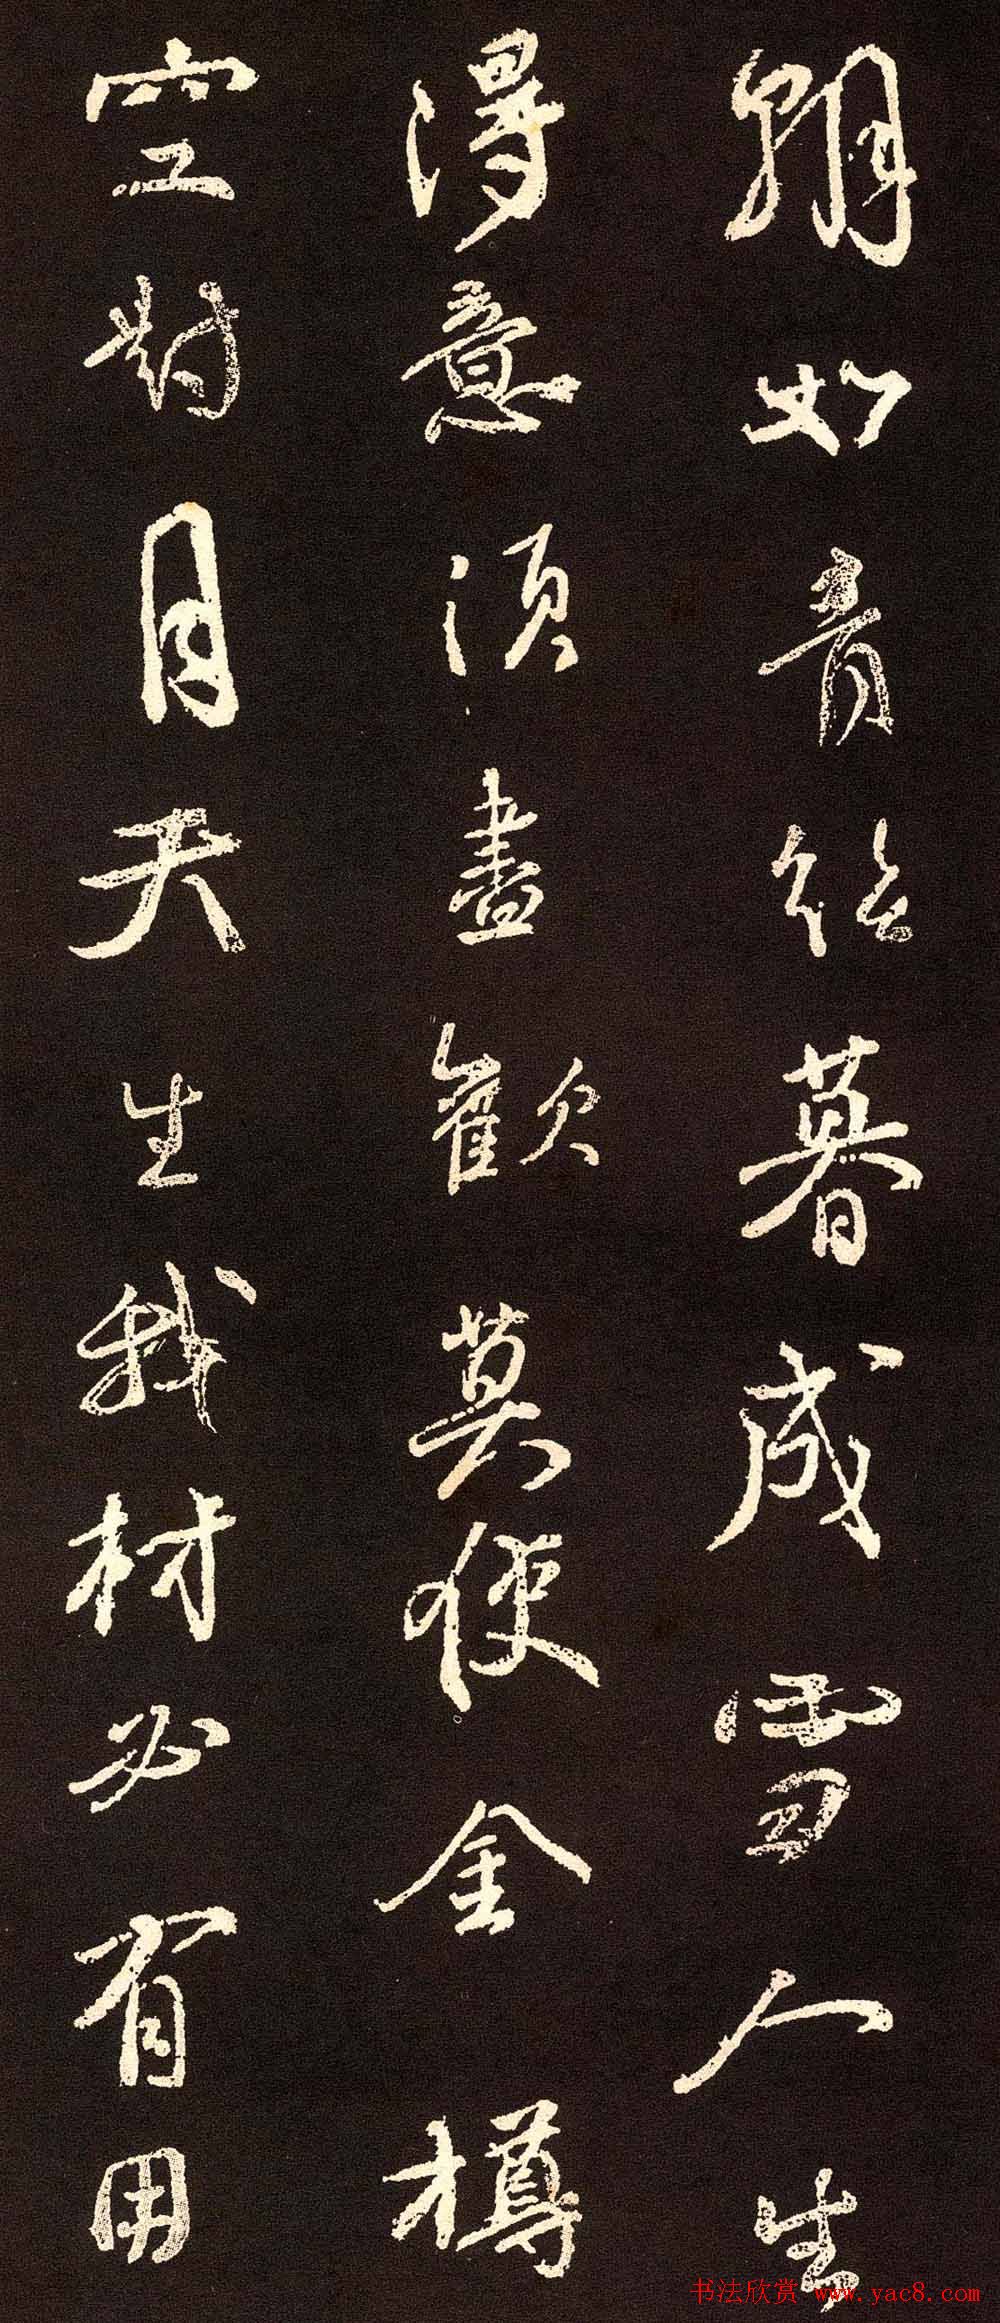 朝如青絲暮成雪人生
得意須盡歡莫使金樽
空對月天生我材必有用
书法欣赏 www.yac8.com